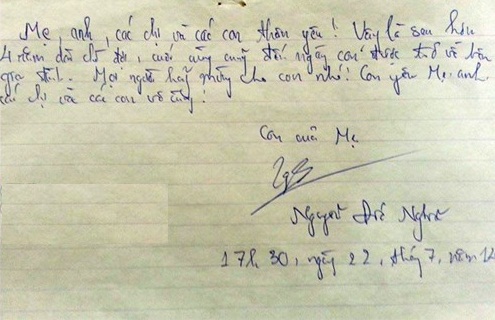 Mẹ, anh, các chị và các con thân yêu! Vậy là sau hơn
4 năm dài chờ đợi, cuối cùng cũng đến ngày con được trở về bên
gia đình. Mọi người hãy mừng cho con nhé! Con yêu Mẹ, anh,
các chị và các con vô cùng!
Con của Mẹ
Nguyễn Đức Nghĩa
17h 30, ngày 22, tháng 7, năm 14